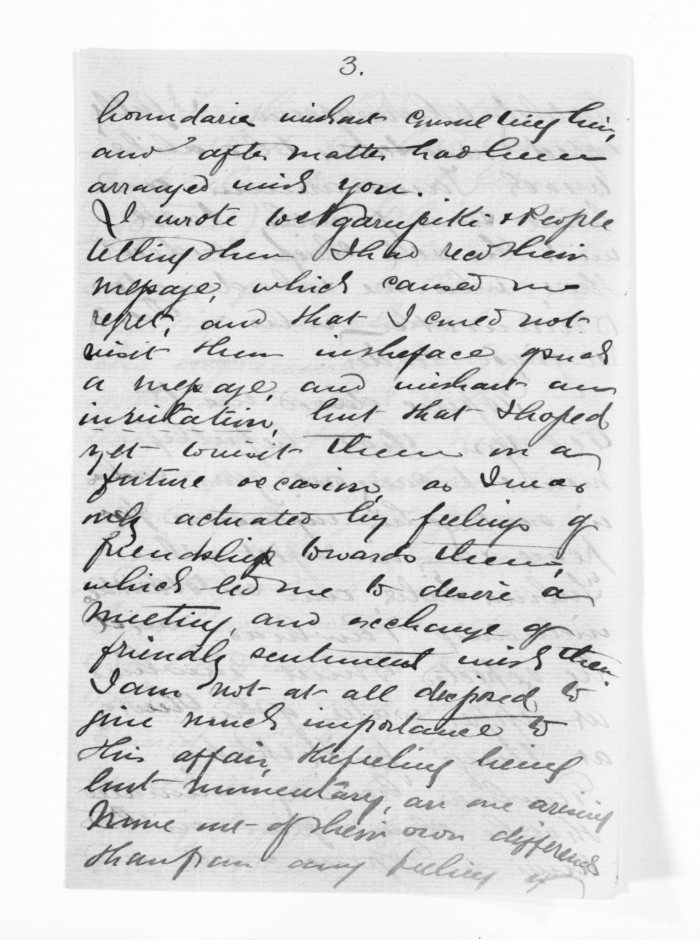 3.
boundaries without consulting him,
and after matter had been
arranged with you.
I wrote to & People
telling them I had recd their
message, which caused me
regret, and that I cd not
visit them in the face of such
a message, and without an
invitation, but that I hoped
yet to visit them on a
future occasion, as I was
only actuated by feelings of
friendship towards them,
which led me to desire a
meeting, and exchange of
friendly sentiment with them.
I am not at all disposed to
give much importance to
this affair, the feeling being
but momentary, an one arising
more out of their own differences
than from any feeling of